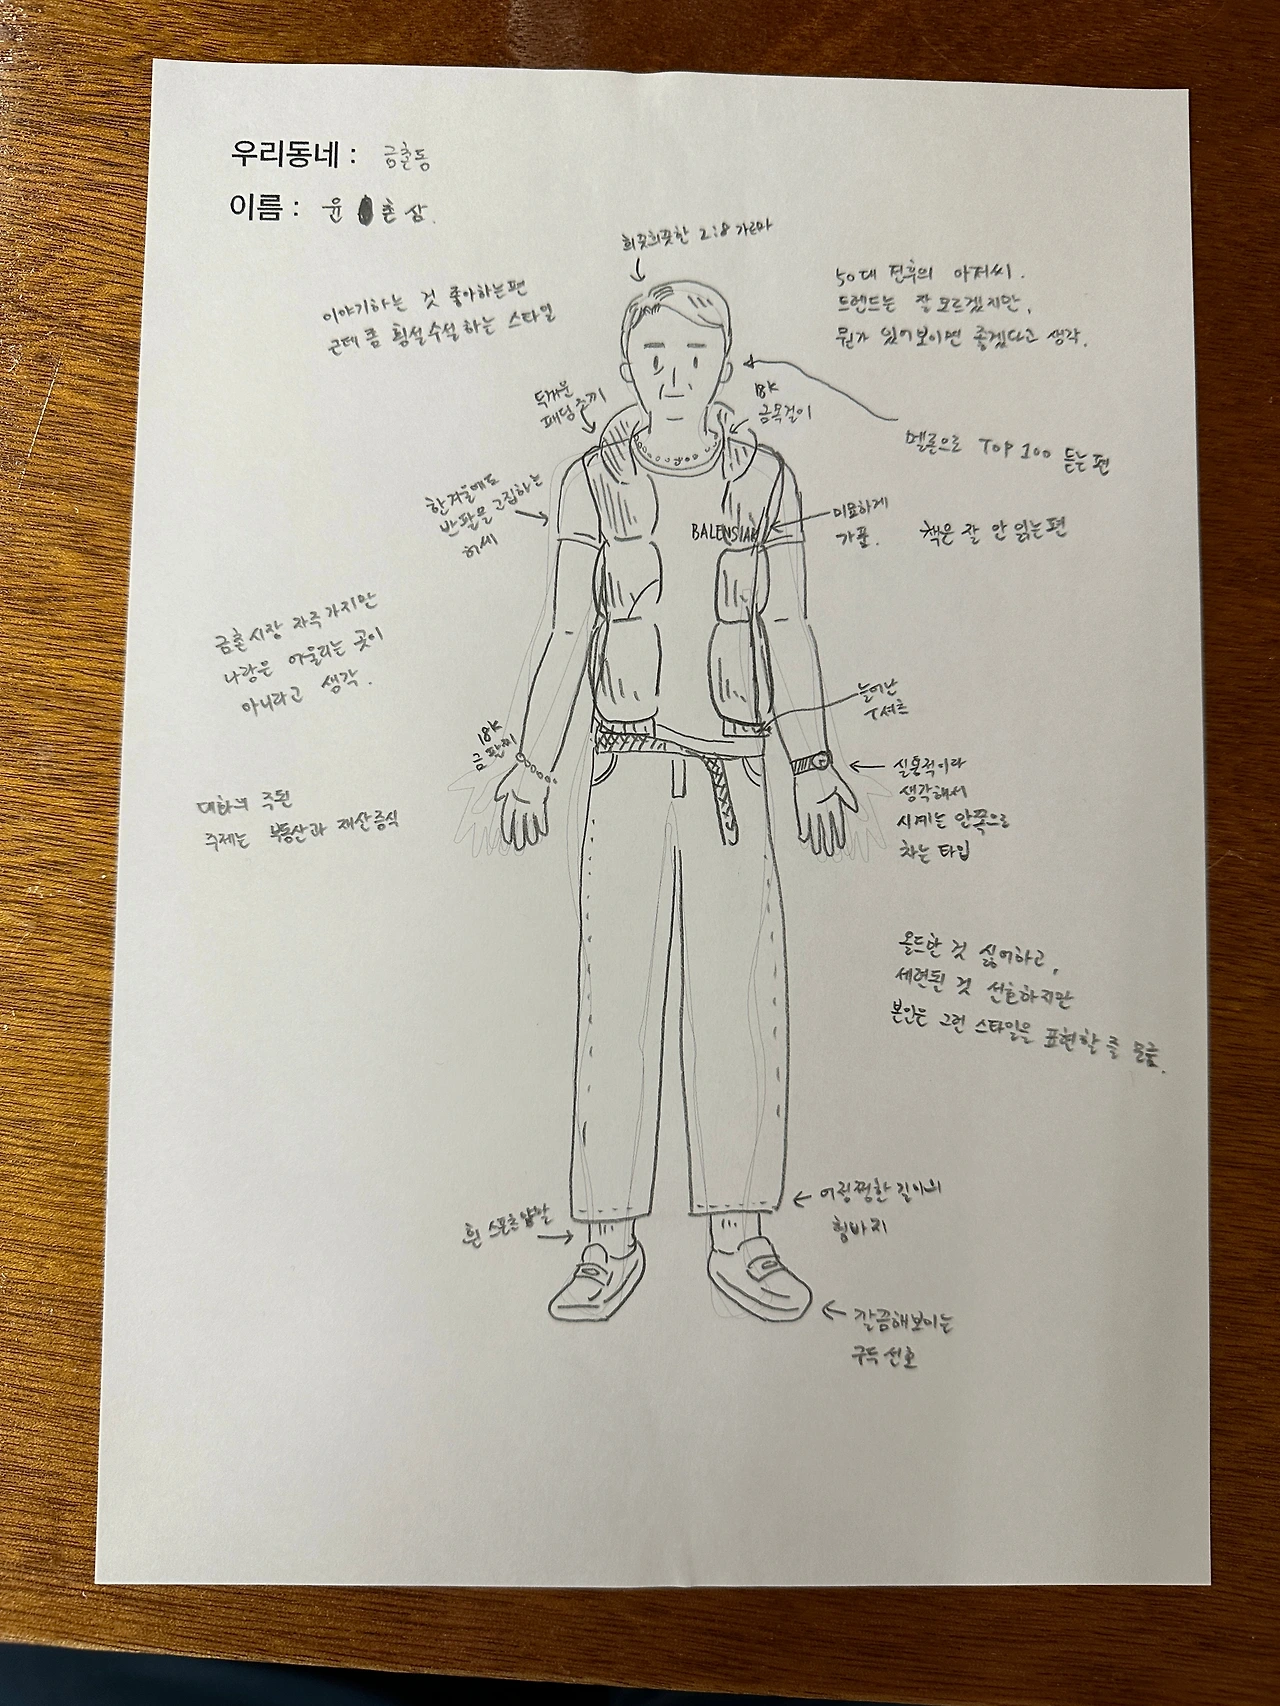 우리동네 : 금촌동
이름 : 윤 촌삼.
희끗희끗한 2:8 가르마
이야기하는 것 좋아하는편
근데 좀 횡설수설하는 스타일
50대 전후의 아저씨.
트렌드는 잘 모르겠지만,
뭔가 있어보이면 좋겠다고 생각.
두꺼운
패딩조끼
18K
금목걸이
멜론으로 TOP 100 듣는편
한겨울에도
반팔을 고집하는
허세
BALENSIAG
미묘하게
가품.
책은 잘 안 읽는편
금촌시장 자주가지만
나랑은 어울리는 곳이
아니라고 생각.
늘어난
T셔츠
18K
금팔찌
실용적이라
생각해서
시계는 안쪽으로
차는 타입
대화의 주된
주제는 부동산과 재산증식
올드한 것 싫어하고,
세련된 것 선호하지만
본인은 그런 스타일을 표현할 줄 모름.
어정쩡한 길이의
힙바지
흰 스포츠양말
깔끔해보이는
구두 선호